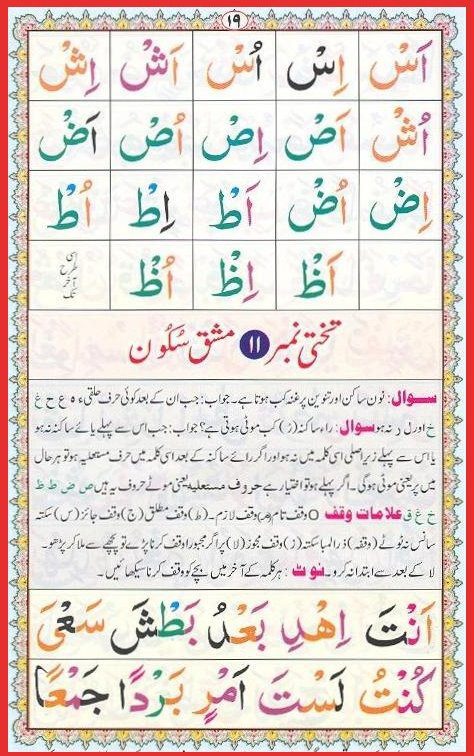 ١٩
اَسْ اِسْ اُسْ اَشْ اِشْ
اُشْ اَصْ اِصْ اُصْ اَضْ
اِضْ اُضْ اَطْ اِطْ اُطْ
اَظْ اِظْ اُظْ اسی طرح آخر تک
تختی نمبر ١١ مشق سُکُون
سوال: نون ساکن اور تنوین پر غنہ کب ہوتا ہے۔ جواب: جب ان کے بعد کوئی حرف حلقی ء ہ ع ح غ
خ اور ل ر نہ ہو سوال: راء ساکنہ (رْ) کب موٹی ہوتی ہے؟ جواب: جب اس سے پہلے یائے ساکنہ نہ ہو
یا اس سے پہلے زیر اصلی اسی کلمہ میں نہ ہو اور اگر رائے ساکنہ کے بعد اسی کلمہ میں حرف مستعلیہ ہو تو ہر حال
میں پر یعنی موٹی ہوگی۔ اگر پہلے ہو تو اختیار ہے حروف مستعلیہ یعنی موٹے حروف یہ ہیں ص ض ط ظ
خ غ ق علامات وقف O وقف تام (مـ) وقف لازم۔ (ط) وقف مطلق (ج) وقف جائز (س) سکتہ
سانس نہ ٹوٹے (وقفہ) ذرا لمبا سکتہ (ز) وقف مجوز (لا) پر اگر مجبوراً وقف کرنا پڑے تو پیچھے سے ملا کر پڑھو۔
لا کے بعد سے ابتدا نہ کرو۔ نوٹ: ہر کلمہ کے آخر میں بچے کو وقف کرنا سیکھائیں۔
اَنْتَ اِهْدِ بَعْدُ بَطْشَ سَعْیَ
كُنْتُ لَسْتَ اَمْرٍ بَرْدًا جَمْعًا